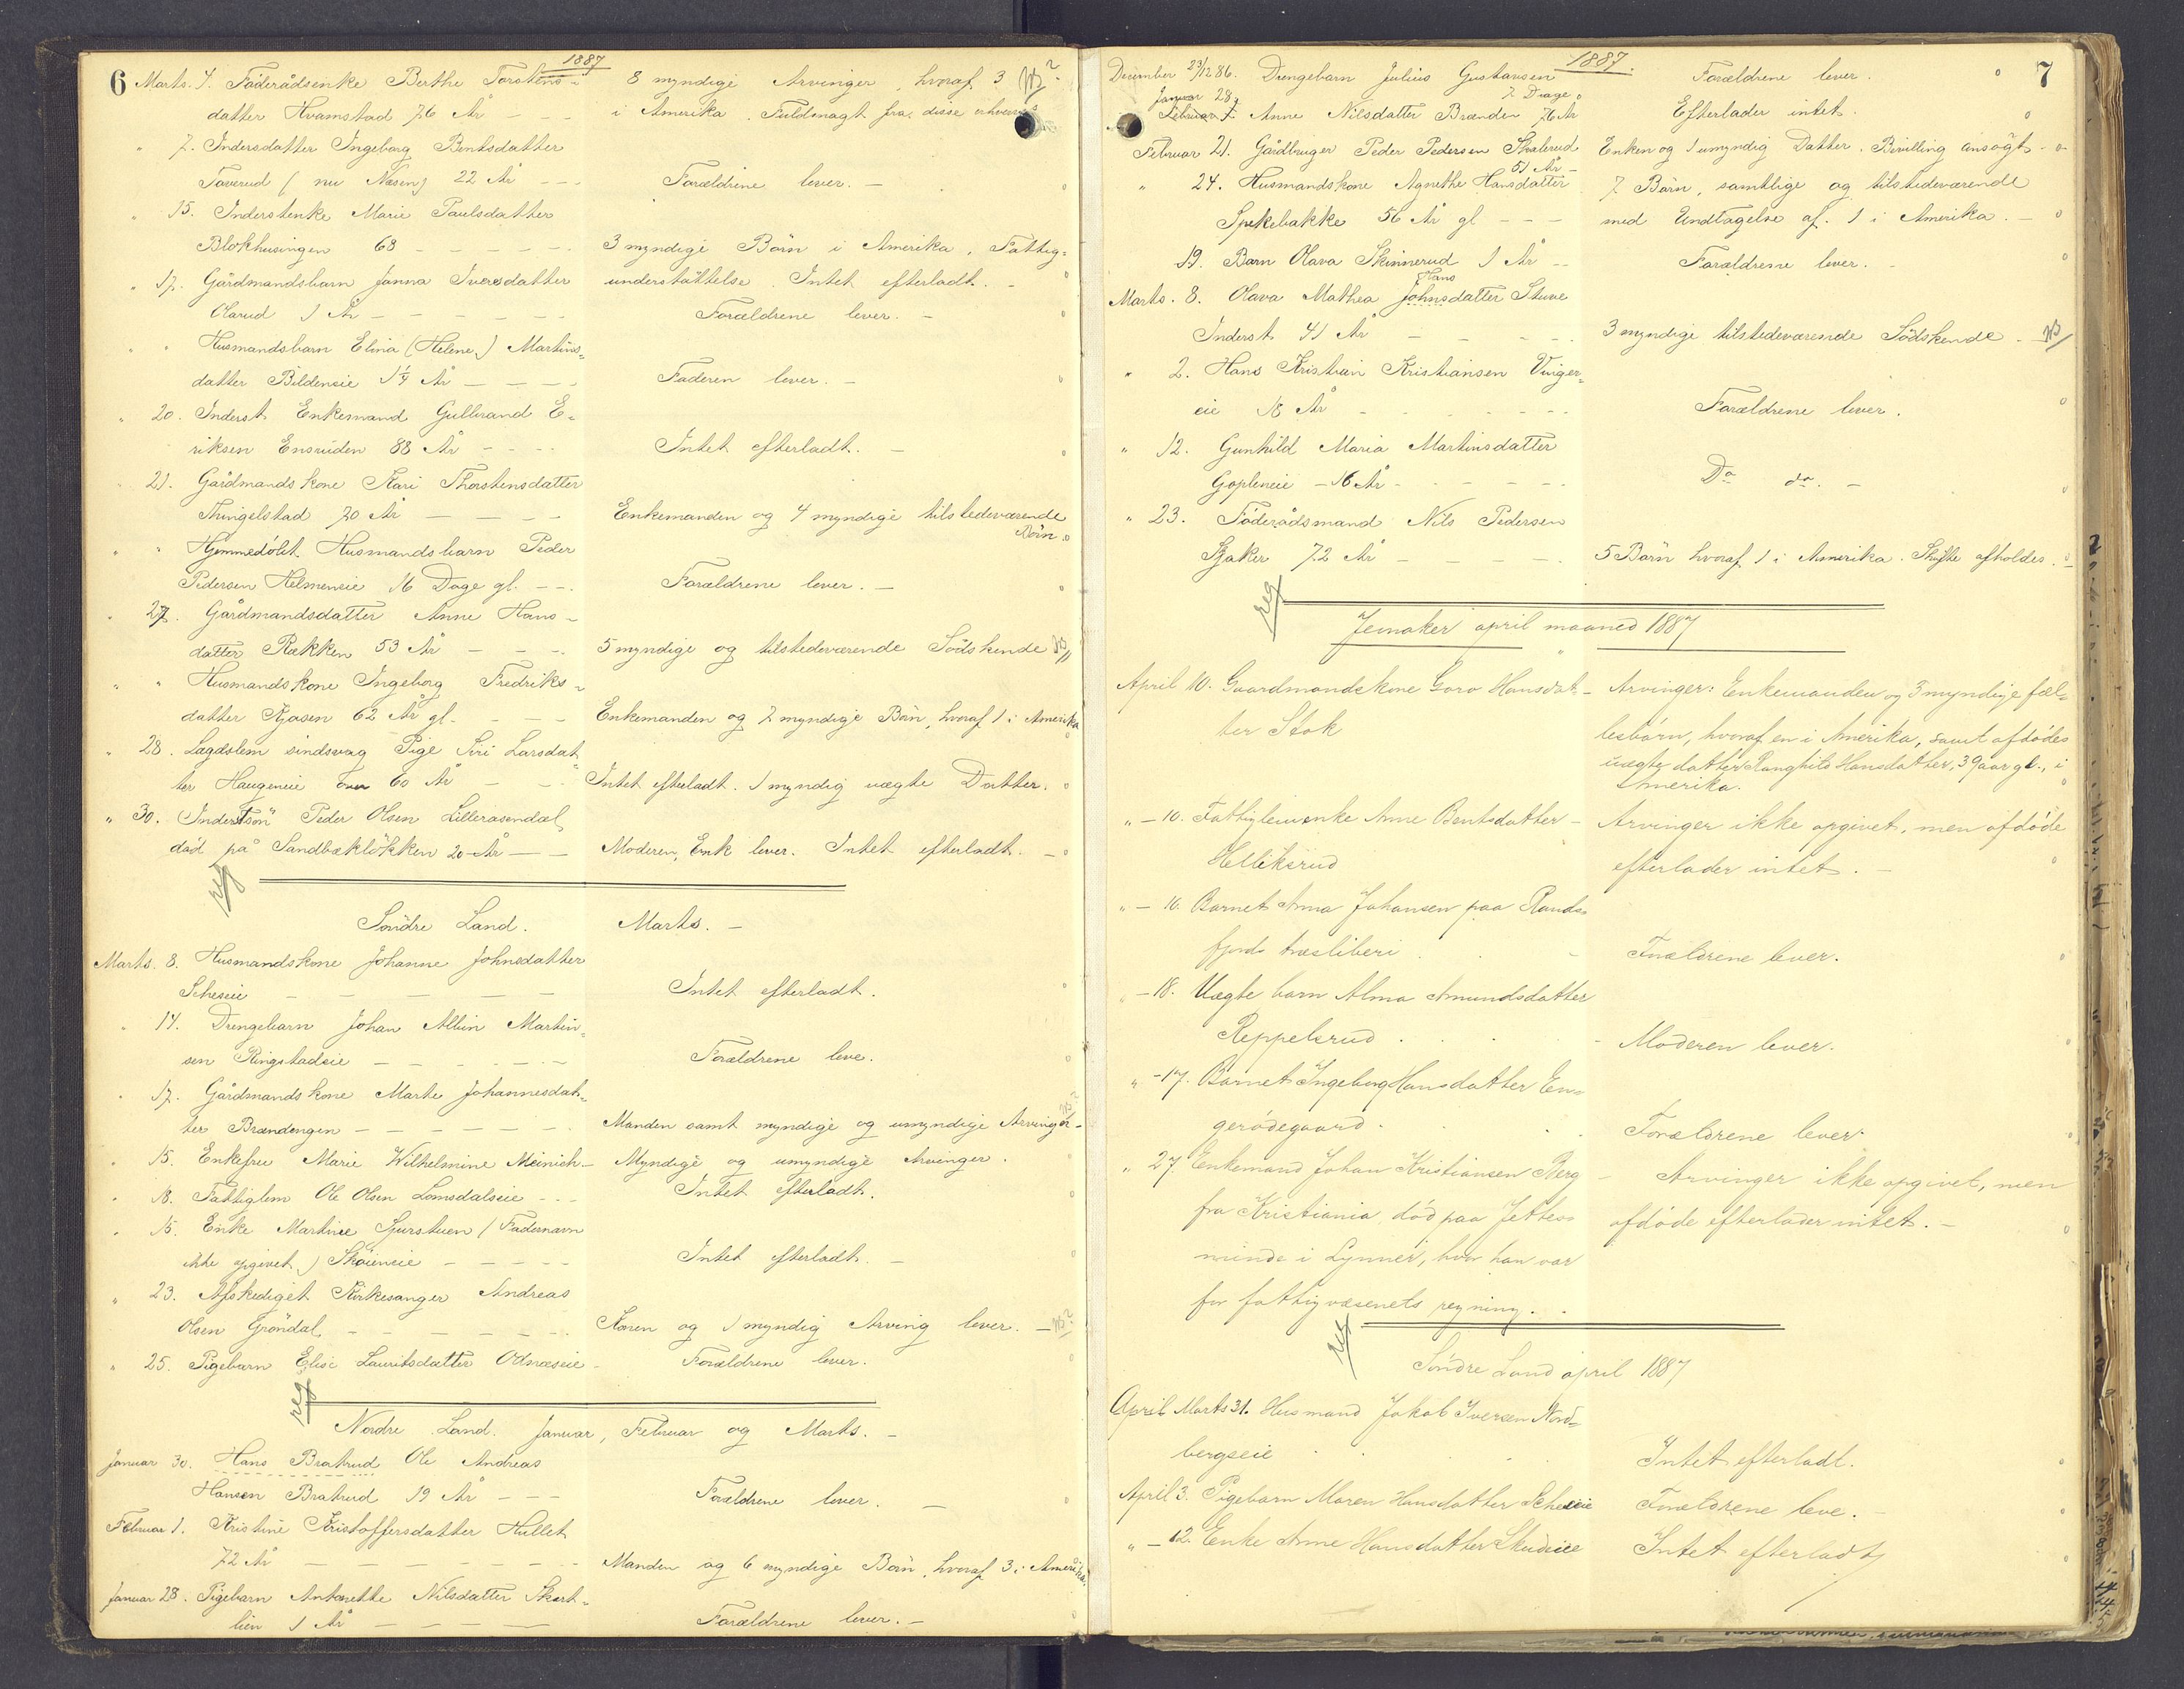 1887
6 Marts. 7. Föderådsenke Berthe Torstens-
datter Kvamstad 76 År - - -
8 myndige Arvinger, hvoraf 3
i Amerika. Fuldmagt fra disse erhverves
" 7. Inderstdatter Ingeborg Bentsdatter
Toverud (nu Næsen) 22 År - - -
Forældrene lever. -
" 15. Inderstenke Marie Paulsdatter
Blokhusingen 68 - - - - -
3 myndige Börn i Amerika. Fattig-
understöttelse. Intet efterladt. -
" 17. Gårdmandsbarn Janna Iversdatter
Olerud 1 År - - - - -
Forældrene lever. -
" " Husmandsbarn Elina (Helene) Martins-
datter Bildeneie 1 1/4 År - - - -
Faderen lever. -
" 20. Inderst Enkemand Gulbrand E-
riksen Ensruden 88 År - - - -
Intet efterladt. -
" 21. Gårdmandskone Kari Thorstensdatter
Thingelstad 70 År - - - -
Enkemanden og 4 myndige tilstedeværende
Börn
" " Hjemmedöbt Husmandsbarn Peder
Pedersen Helmeneie 16 Dage gl. - - -
Forældrene lever. -
" 27. Gårdmandsdatter Anne Hans-
datter Rækken 53 År - - - -
5 myndige og tilstedeværende Södskende
" " Husmandskone Ingeborg Fredriks-
datter 62 År gl. - - -
Enkemanden og 7 myndige Börn, hvoraf 1 i Amerika
" 28. Lægdslem sindsvag Pige Siri Larsdat-
ter Haugeneie over 60 År - - -
Intet efterladt. 1 myndig uægte Datter.
" 30. Inderstsön Peder Olsen Lillerasendal,
död på Sandbæklökken 20 År - -
Moderen, Enk lever. Intet efterladt. -
reg
Söndre Land. Marts. -
Marts. 8. Husmandskone Johanne Johnsdatter
- - - - -
Intet efterladt.
" 14. Drengebarn Johan Albin Martin-
sen Ringstadeie - - - - -
Forældrene leve.
" 17. Gårdmandskone Marte Johannesdat-
ter Brændengen - - - - - -
Manden samt myndige og umyndige Arvinger -
" 15. Enkefru Marie Wilhelmine Meinich -
Myndige og umyndige Arvinger.
" 18. Fattiglem Ole Olsen Lomsdalseie - - -
Intet efterladt.
" 15. Enke Martine Sjurstuen (Fadernavn
ikke opgivet) Sköieneie - - - - -
Intet efterladt. -
" 23. Afskediget Kirkesanger Andreas
Olsen Gröndal - - - - - -
Konen og 1 myndig Arving lever. -
" 25. Pigebarn Elise Lauritsdatter Odnæseie -
Forældrene lever.
reg
Nordre Land. Januar, Februar og Marts. -
Januar 30. Hans Bratrud Ole Andreas
Hansen Bratrud 19 År - - -
Forældrene lever. -
Februar 1. Kristine Kristoffersdatter Hullet
72 År - - - - - - -
Manden og 6 myndige Börn, hvoraf 3 i Amerika.
Januar 28. Pigebarn Antonette Nilsdatter Skart-
lien 1 År - - - - -
Forældrene lever. -
1887. 7
December 23/12 86. Drengebarn Julius Gustavsen
7 Dage
Forældrene lever.
Januar 28.
Februar 7. Anne Nilsdatter Brænden 76 År
Efterlader intet.
Februar 21. Gårdbruger Peder Pedersen Skalerud
51 År -
Enken og 1 umyndig Datter. Bevilling ansögt. -
" 24. Husmandskone Agnethe Hansdatter
Spekebakke 56 År gl - - -
7 Börn, samtlige og tilstedeværende
med Undtagelse af 1 i Amerika. -
19. Barn Olava Skinnerud 1 År - -
Forældrene lever. -
Hans
Marts. 8. Olava Mathea Johnsdatter Stuve
Inderst 41 År - - - -
3 myndige tilstedeværende Södskende.
" 2. Hans Kristian Kristiansen Vinger-
eie 18 År - - - - - -
Forældrene lever.
" 12. Gunhild Maria Martinsdatter
Gopleneie - 16 År - - - - -
Do do. -
" 23. Föderådsmand Nils Pedersen
72 År - - - - -
5 Börn hvoraf 1 i Amerika. Skifte afholdes.
reg
Jevnaker april maaned 1887
April 10. Gaardmandskone Goro Hansdat-
ter Stok
Arvinger: Enkemanden og 5 myndige fæl-
lesbörn, hvoraf en i Amerika, samt afdödes
uægte datter Ranghild Hansdatter, 39 aar gl., i
Amerika.
" - 10. Fattiglemenke Anne Bentsdatter -
Helliksrud
Arvinger ikke opgivet, men afdöde
efterlader intet. -
" - 16. Barnet Anna Johansen paa Rands-
fjords træsliberi . . -
Forældrene lever.
" - 18. Uægte barn Alma Amundsdatter
Reppelsrud . . . -
Moderen lever.
" - 17. Barnet Ingeborg Hansdatter En-
gerödegaard . . .
Forældrene lever
" 27. Enkemand Johan Kristiansen Berg -
fra Kristiania död paa Jettes-
minde i Lynner, hvor han var
for fattigvæsenets regning. .
Arvinger ikke opgivet, men
afdöde efterlader intet. -
reg
Söndre Land april 1887
April Marts 31. Husmand Jakob Iversen Nord-
bergseie . . . .
Intet efterladt.
April 3. Pigebarn Maren Hansdatter
Forældrene leve. -
" - 12. Enke Anne Hansdatter
Intet efterladt